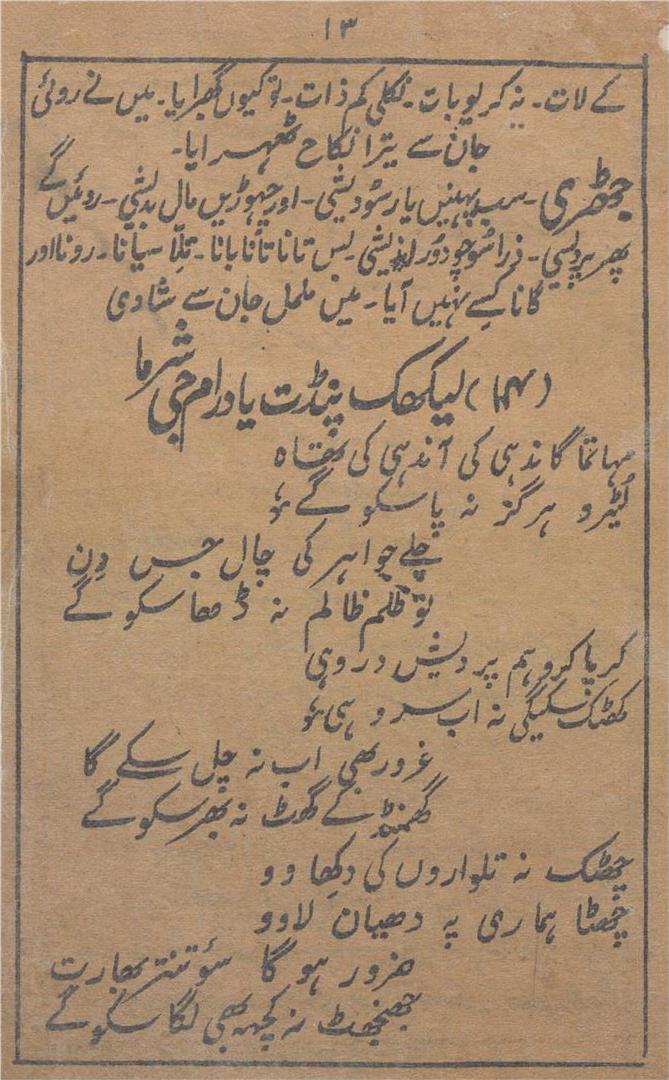 ۱۳
کے لات۔ نہ کریو بات۔ نکلی کم ذات۔ تو کیوں گھبرایا۔ میں نے روئی
جان سے تیرا نکاح ٹھہرایا۔
جھڑی۔ سب پہنیں یار سودیشی۔ اور چھوڑیں مال بدیشی۔ روئیں گے
پھر پردیسی۔ ذرا سوچو دور اندیشی۔ بس تانا تانا بانا۔ سیانا۔ رونا اور
گانا کسے نہیں آیا۔ میں ململ جان سے شادی
(۱۴) لیکھک پنڈت یاد رام جی شرما
مہاتما گاندہی کی آندہی کی تھاہ
لٹیرو ہرگز نہ پا سکو گے
چلے جواہر کی چال جس دن
تو ظلم ظالم نہ ڈھا سکو گے
کرپا کرو ہم پر دیش دروہی
کھٹک سکیگی نہ اب
غرور بھی اب نہ چل سکے گا
گھمنڈ کے گھونٹ نہ بھر سکو گے
چھٹک نہ تلواروں کی دکھاوو
چھٹا ہماری پہ دھیان لاوو
ضرور ہو گا سوتنتر بھارت
جھنجھٹ نہ کچھ بھی لگا سکو گے